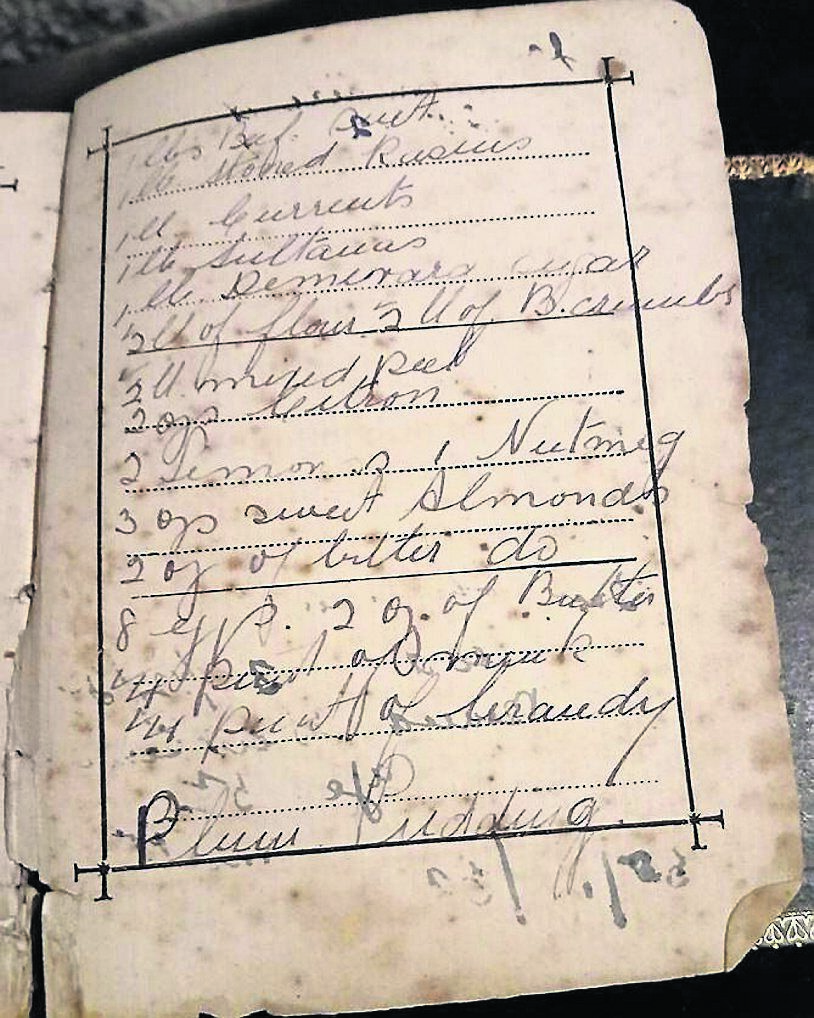 1 lbs Bef. Suet.
1 lb stoned Rasins
1 lb. Currents
1 lb Sultanas
1 lb. Demerara sugar
½ lb of flour ½ lb of B. crumbs
½ lb mixed peel
2 ozs Citron
2 Lemons 1 Nutmeg
3 ozs sweet Almonds
2 oz of bitter do
8 eggs. 2 oz. of Butter
¼ pint of milk
¼ pint of brandy
Plum Pudding.